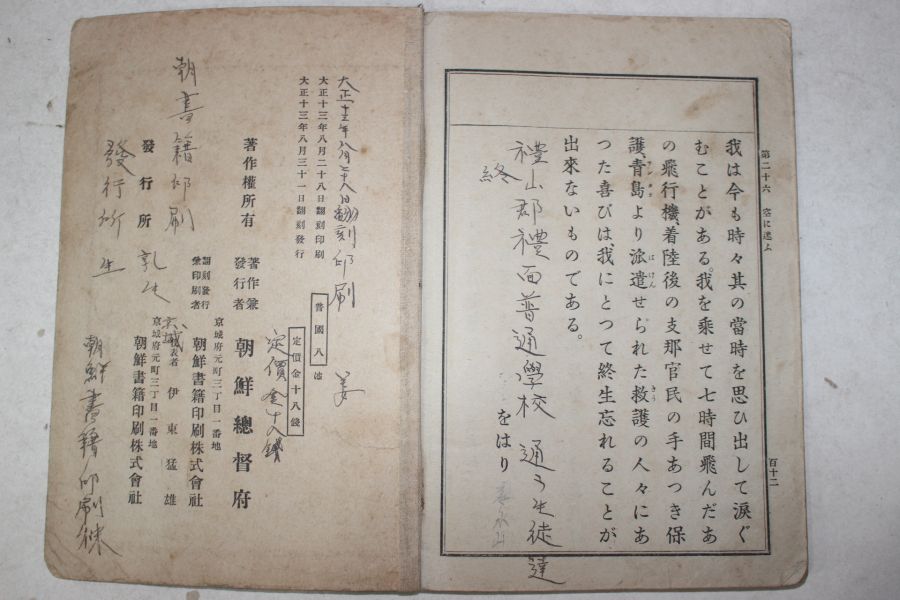 第二十六 空に迷ふ
百十二
我は今も時々其の當時を思ひ出して淚ぐ
むことがある。我を乘せて七時間飛んだあ
の飛行機、着陸後の支那官民の手あつき保
護、青島より派遣せられた救護の人々にあ
つた喜びは、我にとつて終生忘れることが
出來ないものである。
をはり
禮山郡禮面普通學校
終
大正十三年八月二十八日翻刻印刷
大正十三年八月三十一日翻刻發行
著作權所有
普國八
定價金十八錢
著作兼
發行者
朝鮮總督府
京城府元町三丁目一番地
翻刻發行
兼印刷者
朝鮮書籍印刷株式會社
代表者 伊東猛雄
京城府元町三丁目一番地
發行所
朝鮮書籍印刷株式會社
翻刻印刷
姜
定價
朝書籍印刷
發行所
朝鮮書籍印刷株